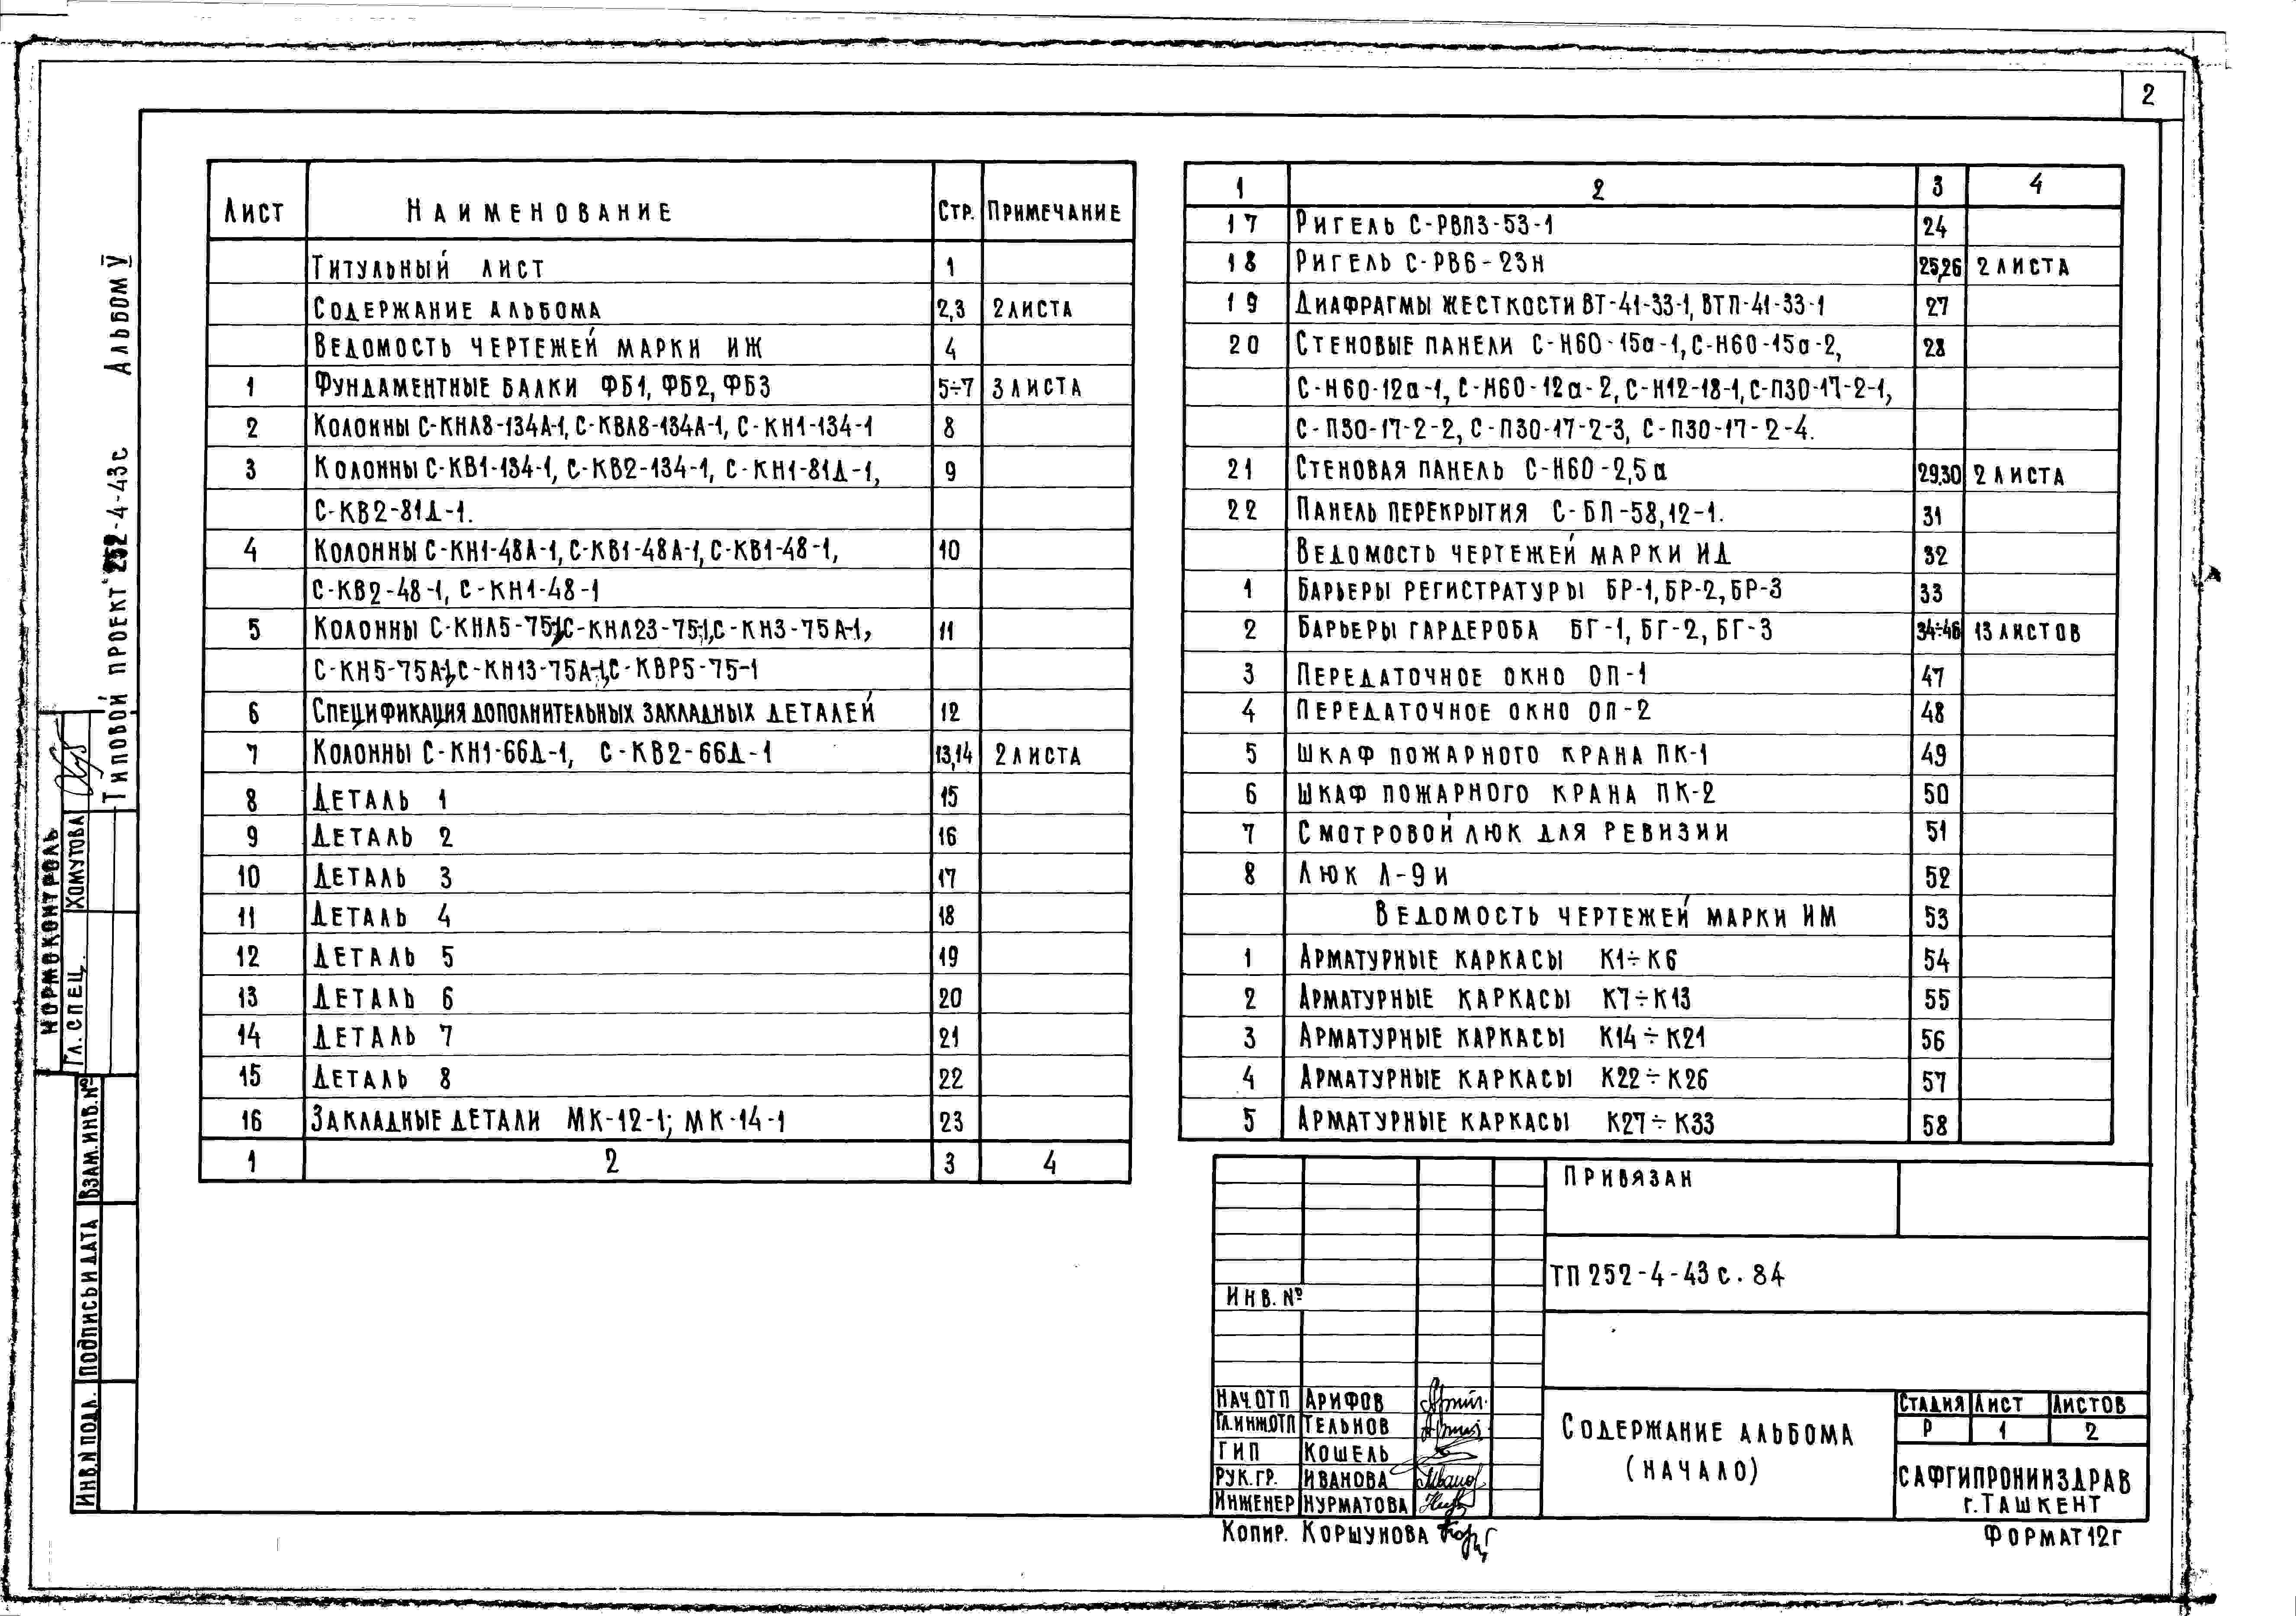 2
Лист Наименование Стр. Примечание
Титульный лист 1
Содержание альбома 2,3 2 листа
Ведомость чертежей марки ИЖ 4
1 Фундаментные балки ФБ1, ФБ2, ФБ3 5÷7 3 листа
2 Колонны С-КНЛ8-134А-1, С-КВЛ8-134А-1, С-КН1-134-1 8
3 Колонны С-КВ1-134-1, С-КВ2-134-1, С-КН1-81Д-1, 9
С-КВ2-81Д-1.
4 Колонны С-КН1-48А-1, С-КВ1-48А-1, С-КВ1-48-1, 10
С-КВ2-48-1, С-КН1-48-1
5 Колонны С-КНЛ5-75-1, С-КНЛ23-75-1, С-КН3-75А-1, 11
С-КН5-75А-1, С-КН13-75А-1, С-КВР5-75-1
6 Спецификация дополнительных закладных деталей 12
7 Колонны С-КН1-66Д-1, С-КВ2-66Д-1 13,14 2 листа
8 Деталь 1 15
9 Деталь 2 16
10 Деталь 3 17
11 Деталь 4 18
12 Деталь 5 19
13 Деталь 6 20
14 Деталь 7 21
15 Деталь 8 22
16 Закладные детали МК-12-1; МК-14-1 23
1 2 3 4
1 2 3 4
17 Ригель С-РВП3-53-1 24
18 Ригель С-РВ6-23н 25,26 2 листа
19 Диафрагмы жесткости ВТ-41-33-1, ВТП-41-33-1 27
20 Стеновые панели С-Н60-15а-1, С-Н60-15а-2, 28
С-Н60-12а-1, С-Н60-12а-2, С-Н12-18-1, С-П30-17-2-1,
С-П30-17-2-2, С-П30-17-2-3, С-П30-17-2-4.
21 Стеновая панель С-Н60-2,5а 29,30 2 листа
22 Панель перекрытия С-БП-58,12-1. 31
Ведомость чертежей марки ИД 32
1 Барьеры регистратуры БР-1, БР-2, БР-3 33
2 Барьеры гардероба БГ-1, БГ-2, БГ-3 34÷46 13 листов
3 Передаточное окно ОП-1 47
4 Передаточное окно ОП-2 48
5 Шкаф пожарного крана ПК-1 49
6 Шкаф пожарного крана ПК-2 50
7 Смотровой люк для ревизии 51
8 Люк Л-9и 52
Ведомость чертежей марки ИМ 53
1 Арматурные каркасы К1÷К6 54
2 Арматурные каркасы К7÷К13 55
3 Арматурные каркасы К14÷К21 56
4 Арматурные каркасы К22÷К26 57
5 Арматурные каркасы К27÷К33 58
Типовой проект 252-4-43с Альбом V
Нормоконтроль
Гл. спец. Хомутова
Инв.N подл. Подпись и дата Взам.инв.№
Привязан
ТП 252-4-43с.84
Инв. №
Нач.отп Арифов
Гл.инж.отп Тельнов
ГИП Кошель
Рук.гр. Иванова
Инженер Нурматова
Содержание альбома
(начало)
Стадия Лист Листов
Р 1 2
САФГИПРОНИИЗДРАВ
г.Ташкент
Копир. Коршунова
Формат 12г